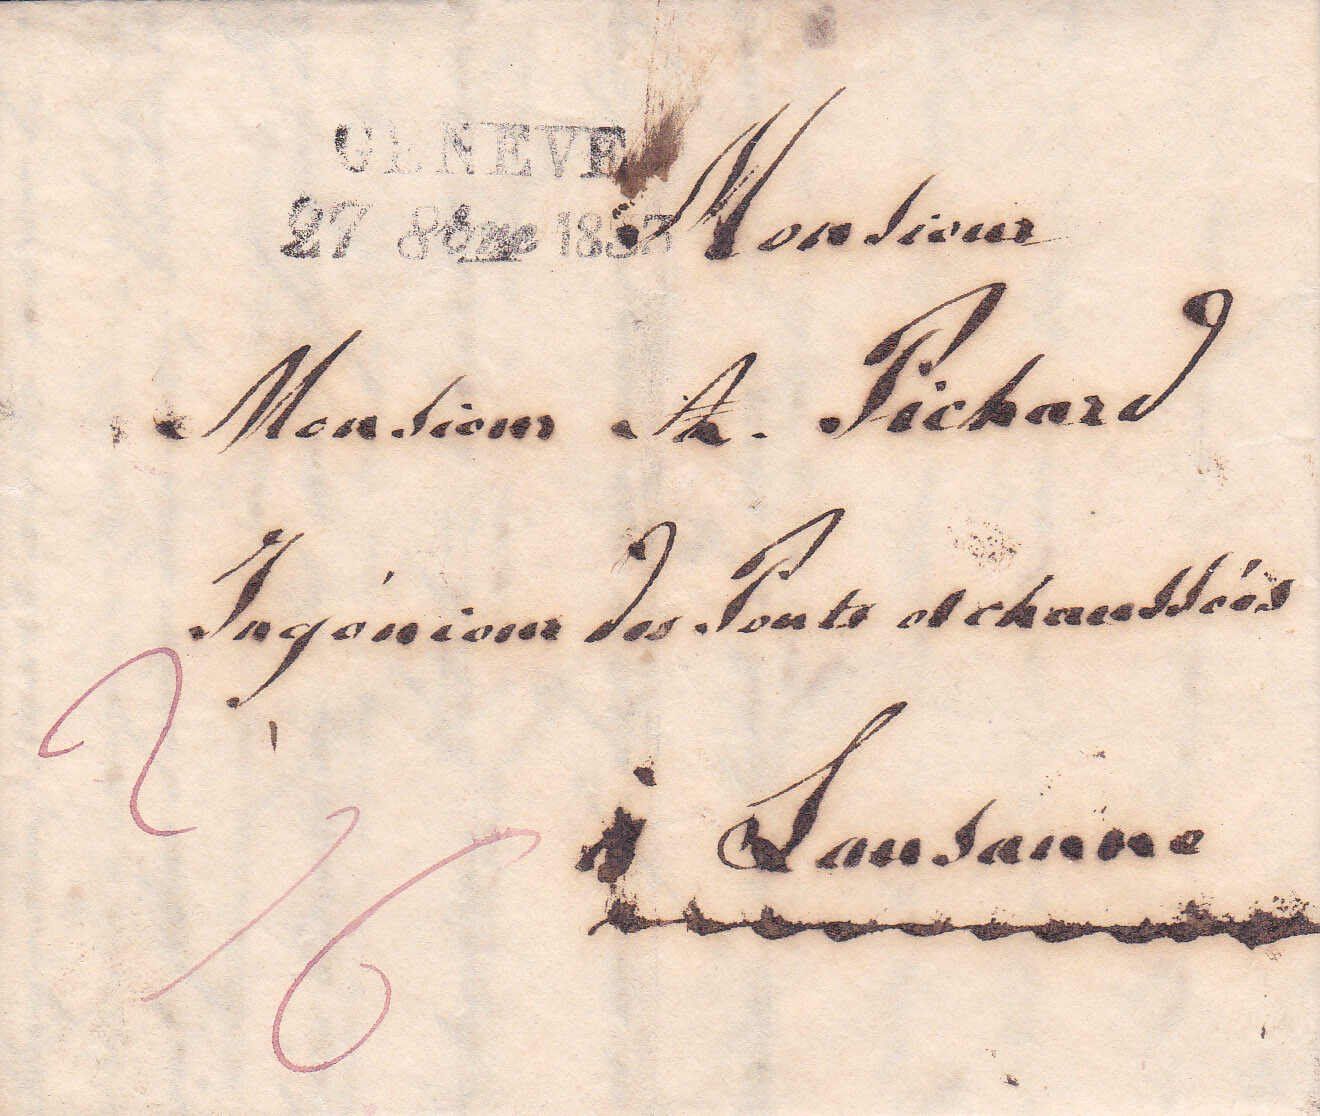 GENEVE
27 8bre
Monsieur
Monsieur A. Pichard
Ingénieur des Ponts et chaussées
à Lausanne
2/6